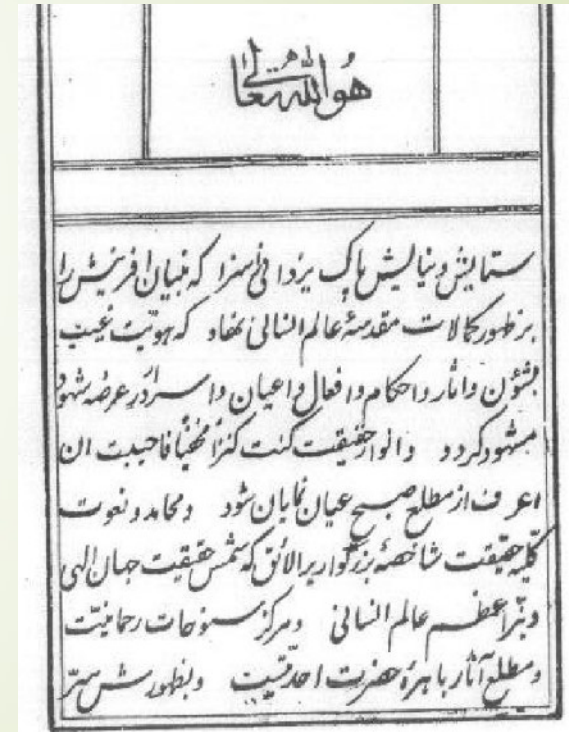 هو الله تعالی
ستایش و نیایش پاک یزدانی را سزا که بنیان افرینش را
بر ظهور کمالات مقدسهٔ عالم انسانی نهاد که هویّت غیب
بشئون و اثار و احکام و افعال و اعیان و اسرار در عرصه شهود
مشهود گردد و انوار حقیقت کنت کنزاً مخفیّاً فاحببت ان
اعرف از مطلع صبح عیان نمایان شود و محامد و نعوت
کلّیه حقیقت شاخصهٔ بزرگواریرا لائق که شمس حقیقت جهان الهی
و نیّر اعظم عالم انسانی و مرکز سنوحات رحمانیّت
و مطلع آثار باهرهٔ حضرت احدیّتست و بظهورش سرّ